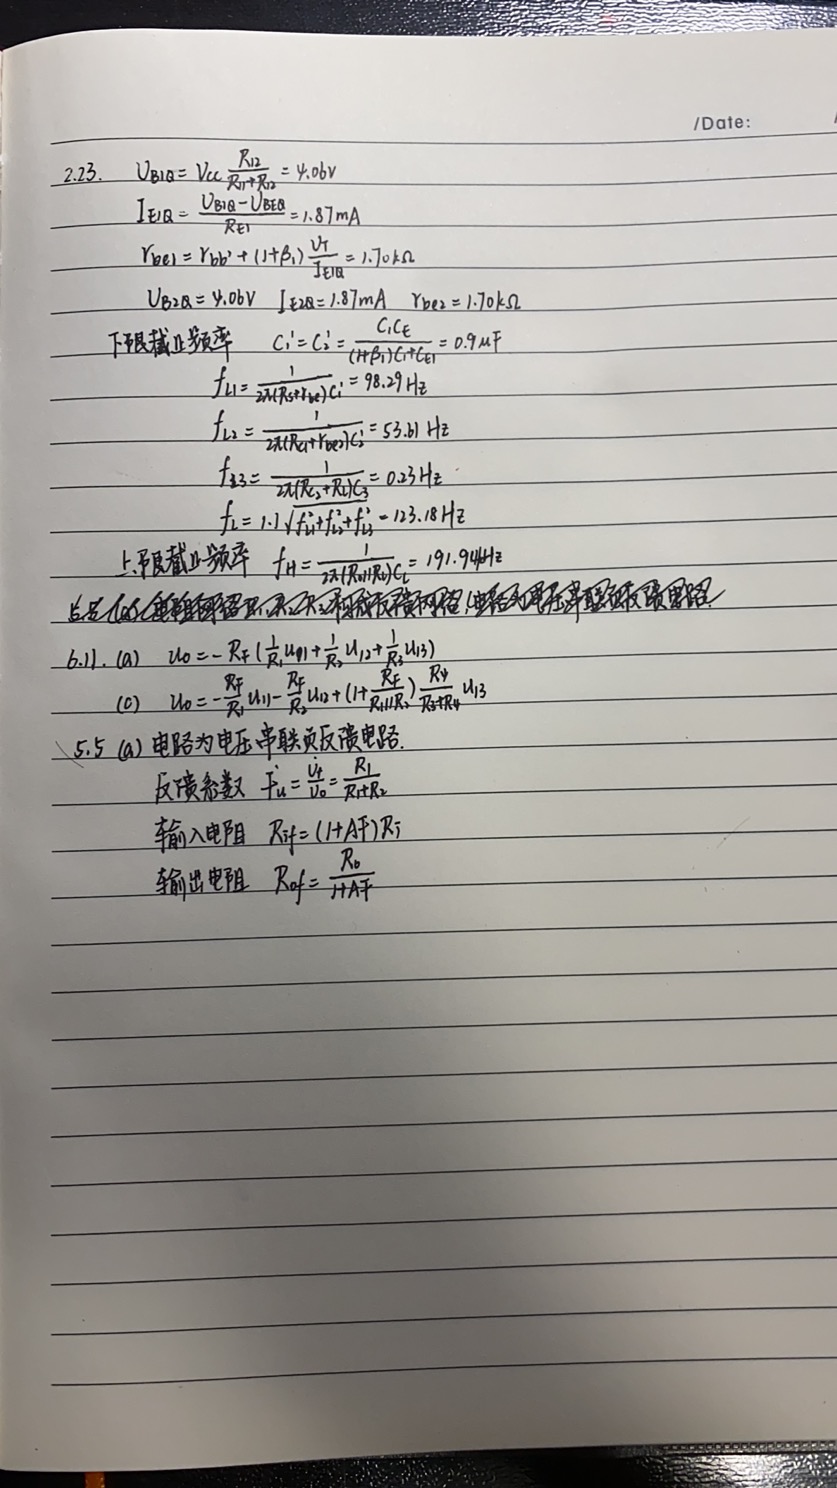 /Date:
2.23. U_{B1Q} = V_{CC} \frac{R_{12}}{R_{11}+R_{12}} = 4.06V
I_{E1Q} = \frac{U_{B1Q}-U_{BEQ}}{R_{E1}} = 1.87mA
r_{be1} = r_{bb'} + (1+β_1) \frac{U_T}{I_{E1Q}} = 1.70kΩ
U_{B2Q} = 4.06V I_{E2Q} = 1.87mA r_{be2} = 1.70kΩ
下限截止频率 C_1' = C_2' = \frac{C_1C_E}{(1+β_1)C_1+C_{E1}} = 0.9μF
f_{L1} = \frac{1}{2π(R_S+r_{be})C_1'} = 98.29Hz
f_{L2} = \frac{1}{2π(R_{C1}+r_{be2})C_2'} = 53.61Hz
f_{L3} = \frac{1}{2π(R_{C2}+R_L)C_3} = 0.23Hz
f_L = 1.1\sqrt{f_{L1}^2+f_{L2}^2+f_{L3}^2} = 123.18Hz
上限截止频率 f_H = \frac{1}{2π(R_{C2}||R_L)C_L} = 191.94kHz
6.11. (a) u_o = -R_F(\frac{1}{R_1}u_{I1}+\frac{1}{R_2}u_{I2}+\frac{1}{R_3}u_{I3})
(c) u_o = -\frac{R_F}{R_1}u_{I1}-\frac{R_F}{R_2}u_{I2}+(1+\frac{R_F}{R_1||R_2})\frac{R_4}{R_3+R_4}u_{I3}
5.5 (a) 电路为电压串联负反馈电路.
反馈系数 \dot{F}_u = \frac{\dot{U}_f}{\dot{U}_o} = \frac{R_1}{R_1+R_2}
输入电阻 R_{if} = (1+AF)R_i
输出电阻 R_{of} = \frac{R_o}{1+AF}